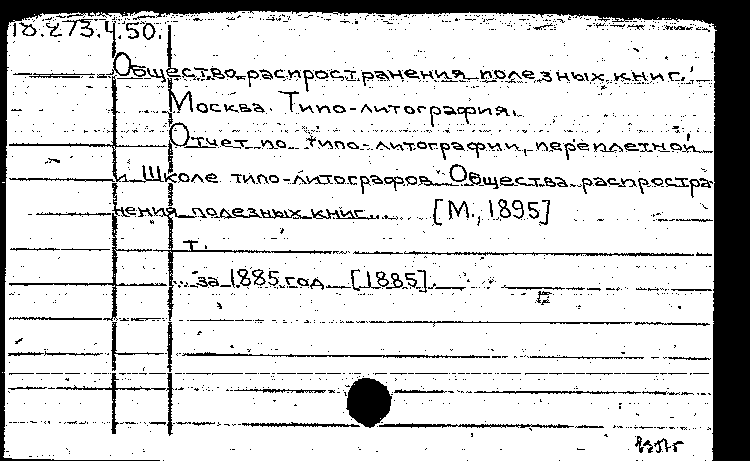 18.273.4.50.
Общество распространения полезных книг.
Москва. Типо-литография.
Отчет по типо-литографии, переплетной
и Школе типо-литографов Общества распростра
нения полезных книг... [М., 1895]
т.
... за 1885 год [1885].